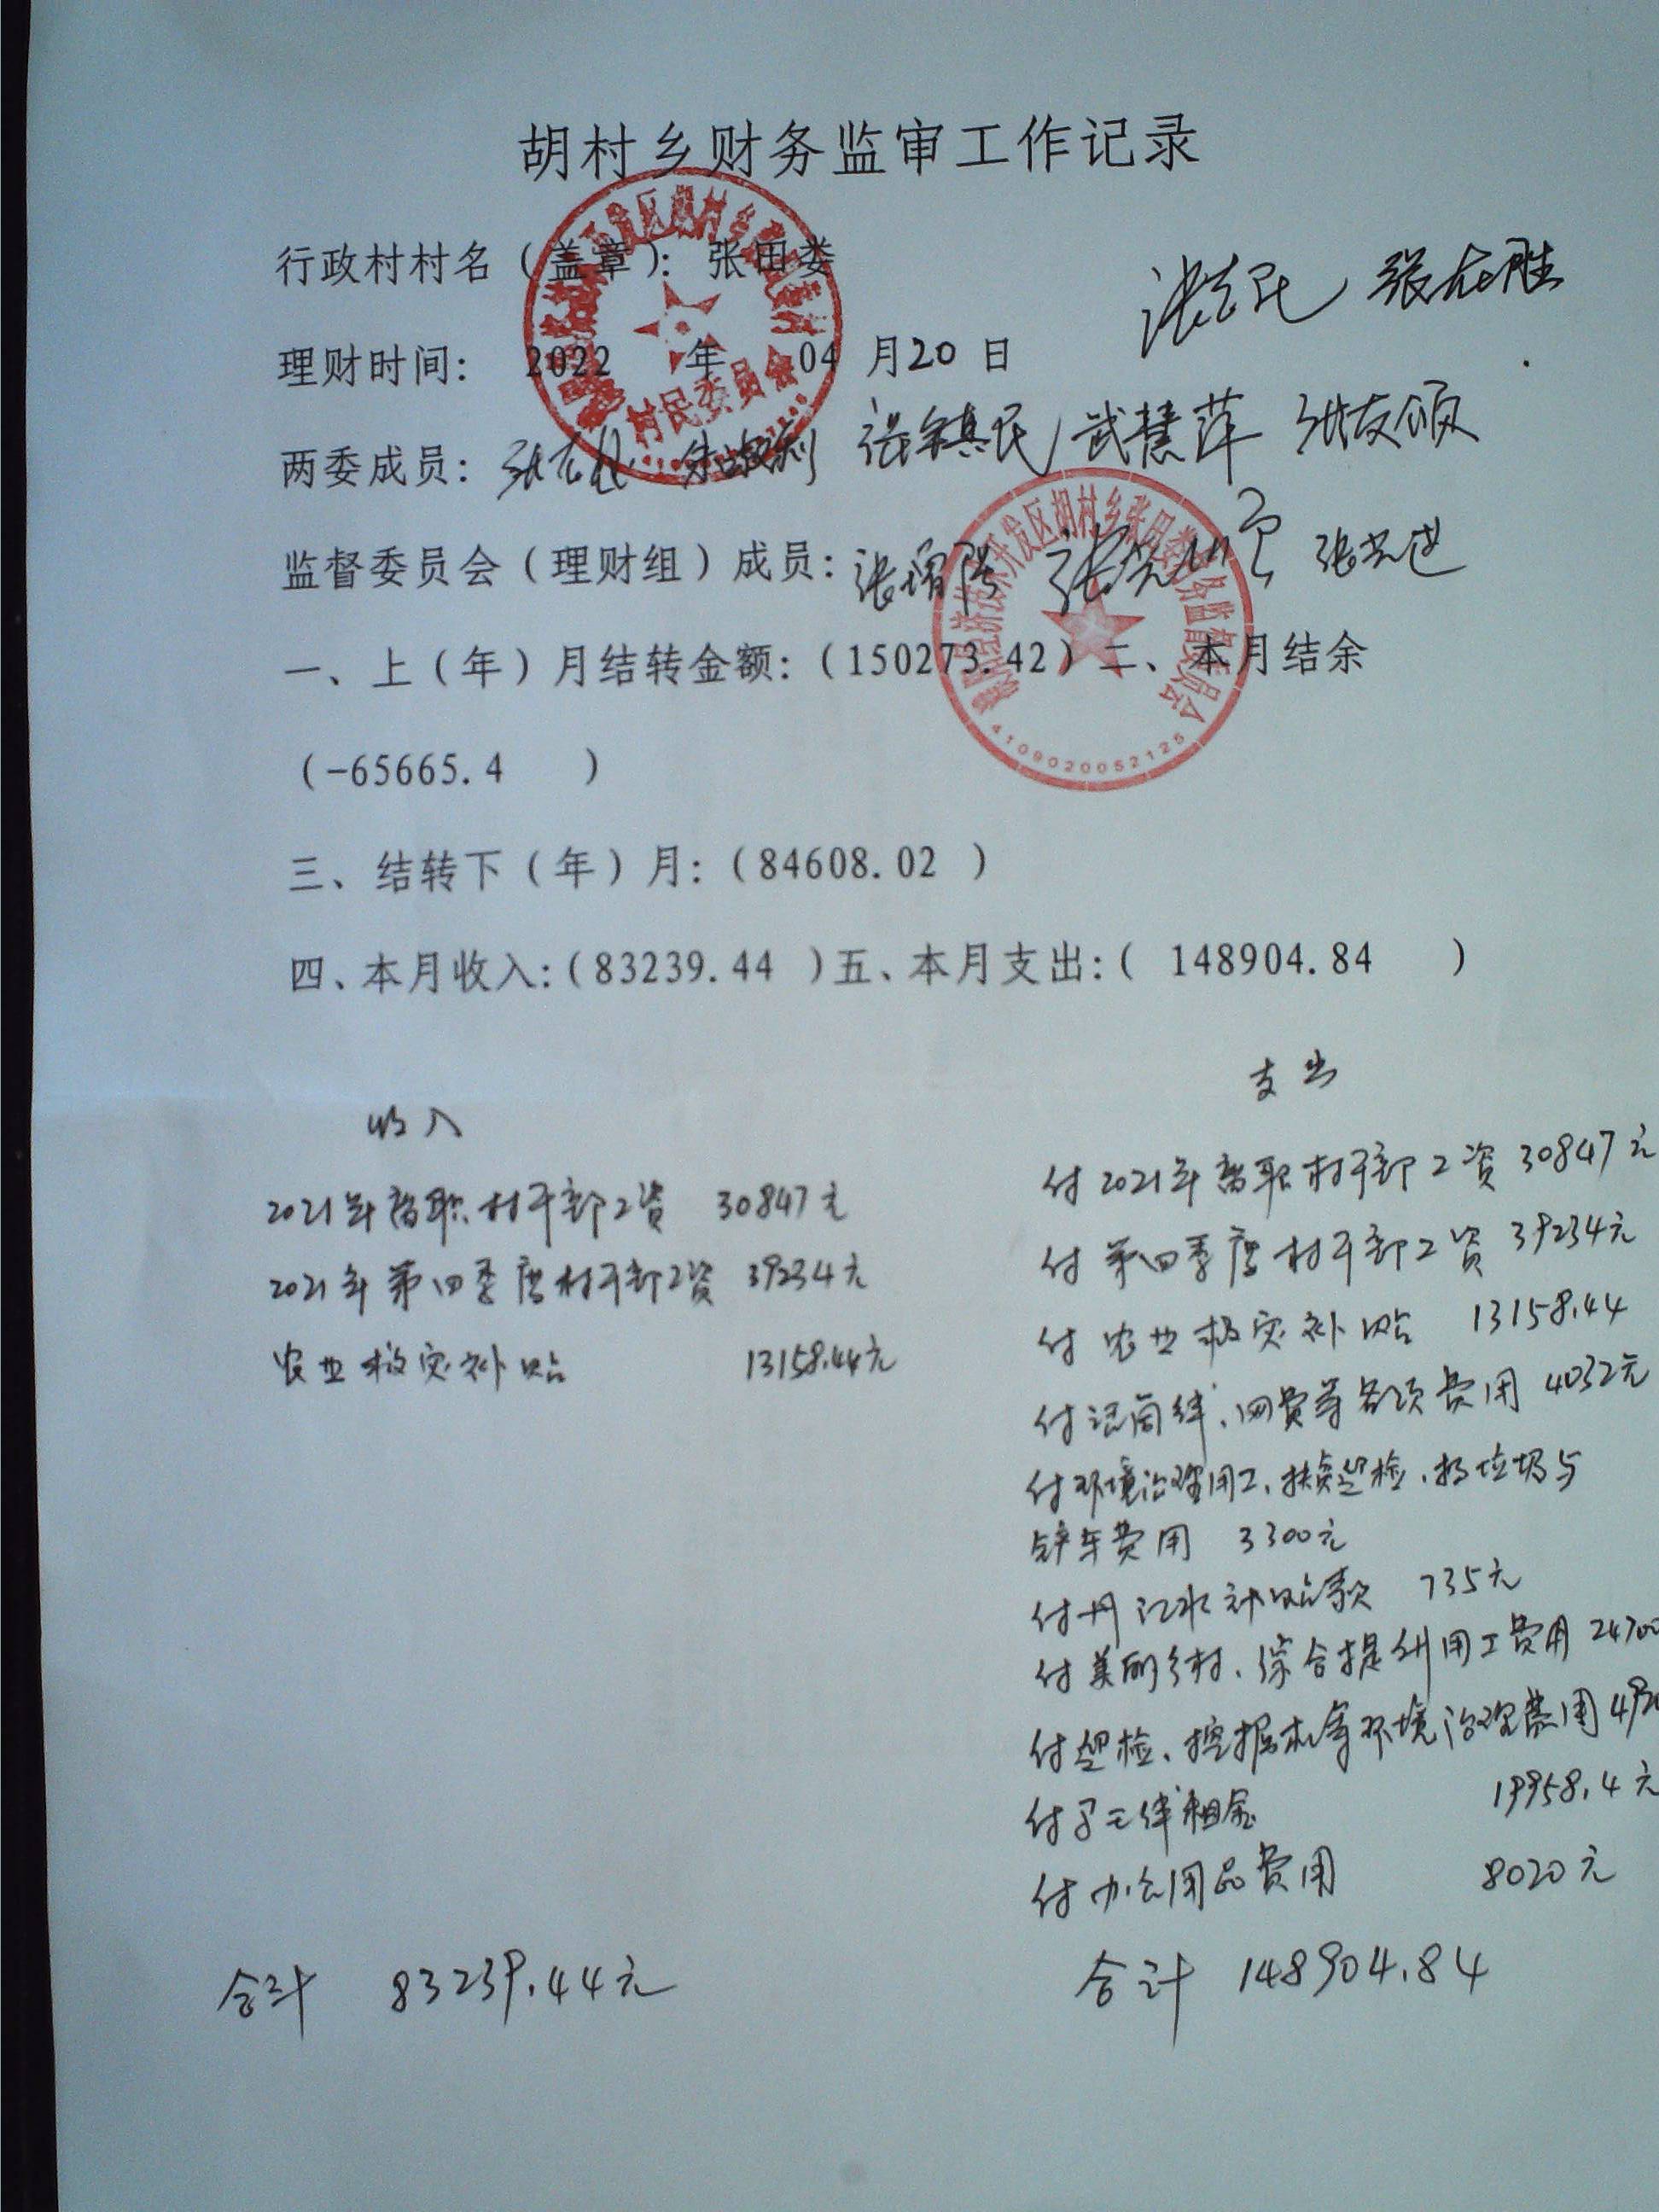 胡村乡财务监审工作记录
行政村村名（盖章）：张田娄
理财时间： 2022 年 04 月20 日
两委成员： 张镇民 武慧萍 张友顺
监督委员会（理财组）成员：
一、上（年）月结转金额：（150273.42）二、本月结余
（-65665.4 ）
三、结转下（年）月：（84608.02 ）
四、本月收入：（83239.44 ）五、本月支出：（ 148904.84 ）
收入
2021年离职村干部工资 30847元
2021年第四季度村干部工资 39234元
农业救灾补贴 13158.44元
合计 83239.44元
支出
付2021年离职村干部工资 30847元
付第四季度村干部工资 39234元
付农业救灾补贴 13158.44
付记商绊、网费等各项费用 4032元
付环境治理用工、扶贫迎检、拐垃圾与
铲车费用 3300元
付丹江水补贴款 735元
付美丽乡村、综合提升用工费用 24700
付迎检、挖掘机等环境治理费用 4920
付 租金 19958.4元
付办公用品费用 8020元
合计 148904.84
村民委员会
开发区胡村乡张田娄村务监督委员会
4109020052125